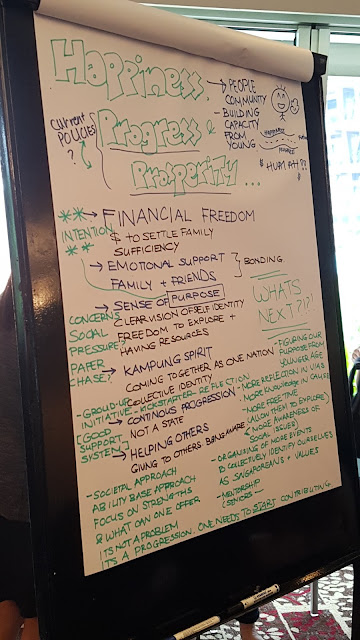 Happiness,
→ PEOPLE
COMMUNITY
- BUILDING
CAPACITY
FROM
YOUNG
HAPPINESS
$ HUAT AH?? $
CURRENT
POLICIES
?
Progress &
Prosperity ...
** → FINANCIAL FREEDOM
INTENTION
**
$ TO SETTLE FAMILY
SUFFICIENCY
→ EMOTIONAL SUPPORT
FAMILY + FRIENDS
BONDING
→ SENSE OF PURPOSE
CLEAR VISION OF SELF IDENTITY
FREEDOM TO EXPLORE +
HAVING RESOURCES
CONCERNS
SOCIAL
PRESSURE?
PAPER
CHASE?
WHATS
NEXT?!?!
→ KAMPUNG SPIRIT
COMING TOGETHER AS ONE NATION
COLLECTIVE IDENTITY
- GROUND-UP
INITIATIVE - KICKSTARTER REFLECTION
(GOOD
SUPPORT
SYSTEM)
→ CONTINOUS PROGRESSION
NOT A STATE
→ HELPING OTHERS
GIVING TO OTHERS BEING AWARE
- FIGURING OUR
PURPOSE FROM
YOUNGER AGE
- MORE REFLECTION IN VIAS
- MORE KNOWLEDGE IN CAUSES
- MORE FREE TIME
(ALLOW THEM TO EXPLORE)
(MORE AWARENESS OF
SOCIAL ISSUES)
- ORGANISING OF MORE EVENTS
TO COLLECTIVELY IDENTIFY OURSELVES
AS SINGAPOREANS + VALUES
- MENTORSHIP
(SENIORS
- SOCIETAL APPROACH
ABILITY BASE APPROACH
FOCUS ON STRENGTHS
& WHAT CAN ONE OFFER
IT'S NOT A PROBLEM
IT'S A PROGRESSION. ONE NEEDS TO START CONTRIBUTING